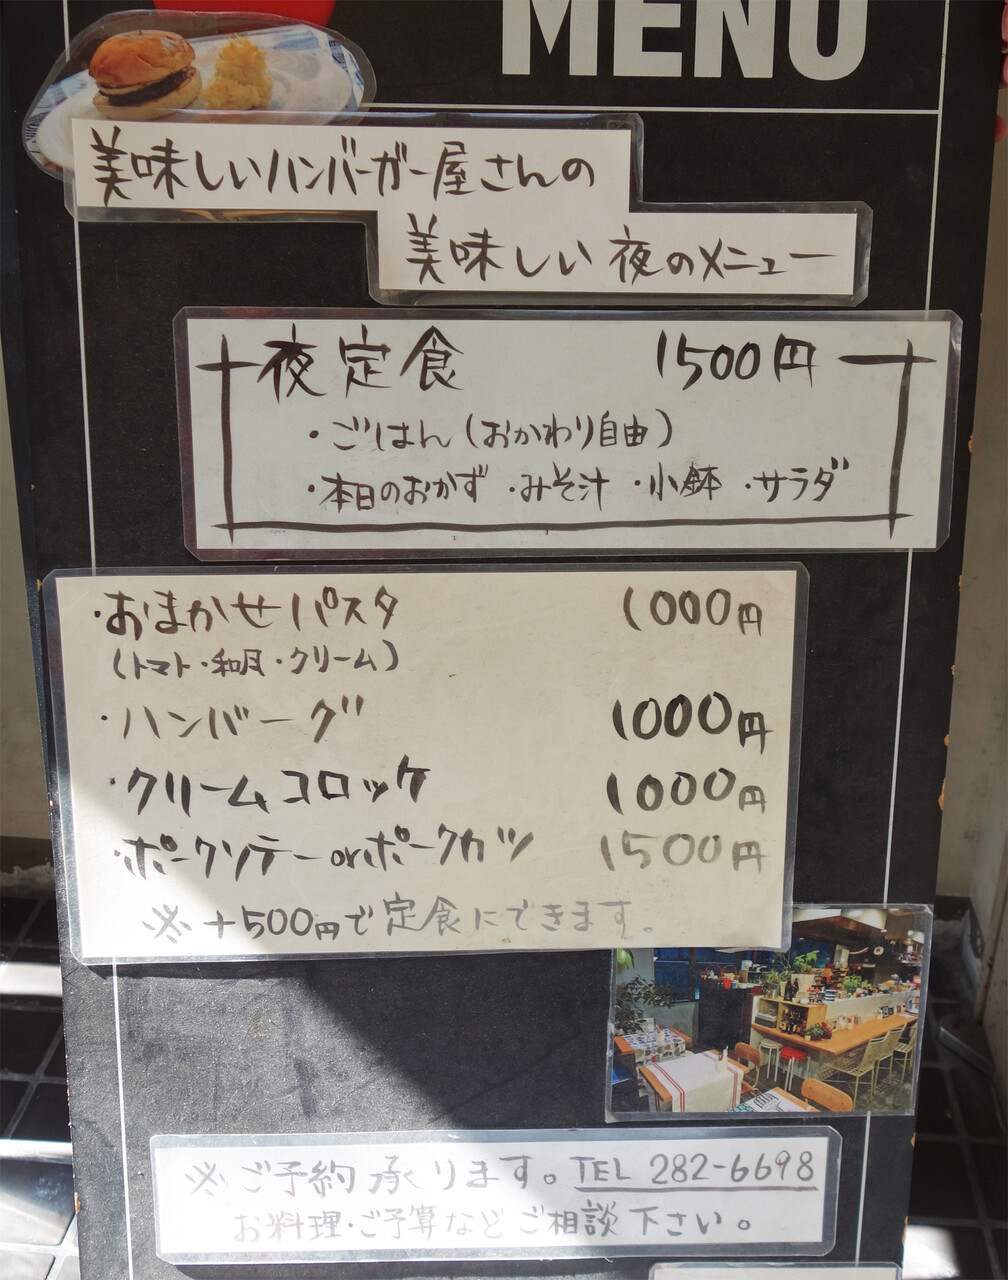 MENU
美味しいハンバーガー屋さんの
美味しい夜のメニュー
夜定食 1500円
・ごはん(おかわり自由)
・本日のおかず ・みそ汁 ・小鉢 ・サラダ
・おまかせパスタ 1000円
(トマト・和風・クリーム)
・ハンバーグ 1000円
・クリームコロッケ 1000円
・ポークソテーorポークカツ 1500円
※+500円で定食にできます。
※ご予約承ります。TEL 282-6698
お料理・ご予算などご相談下さい。